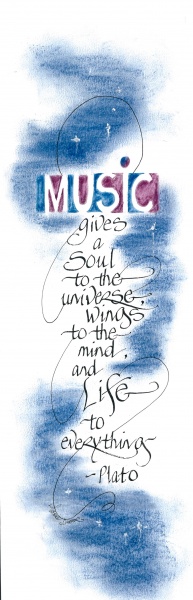 MUSIC
gives
a
Soul
to the
universe,
wings
to the
mind,
and
Life
to
everything
~Plato